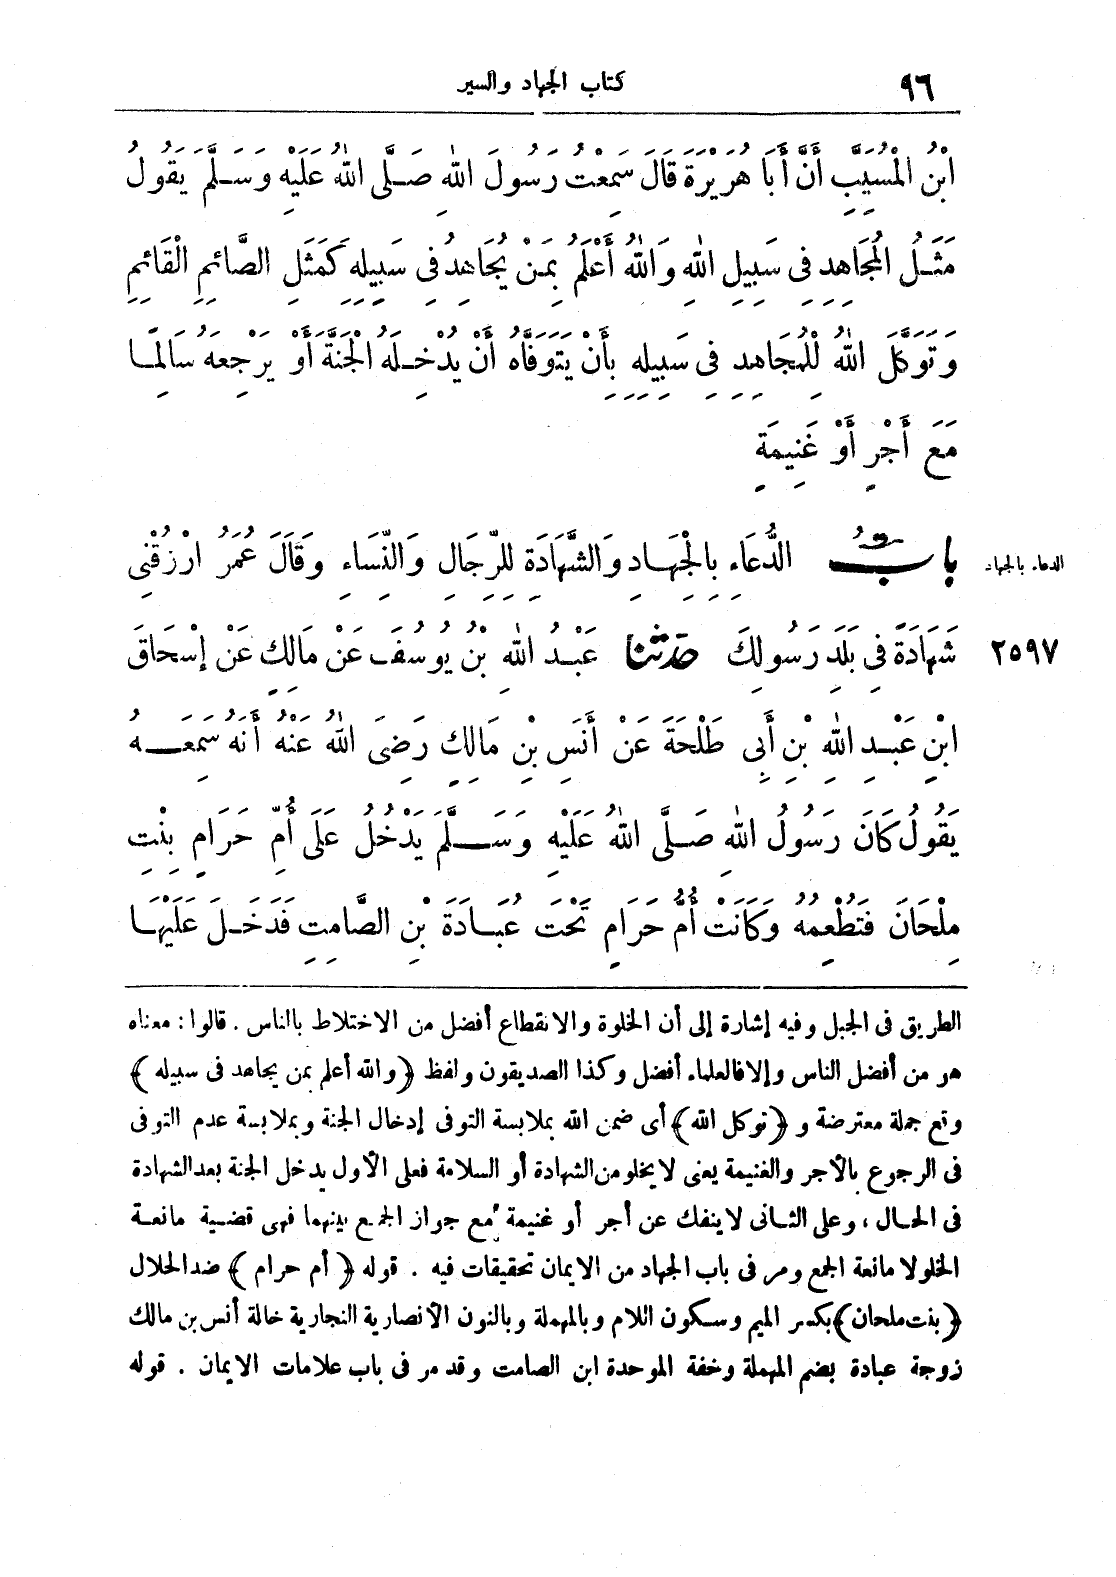 ٩٦
كتاب الجهاد والسير
ابْنُ الْمُسَيَّبِ أَنَّ أَبَا هُرَيْرَةَ قَالَ سَمِعْتُ رَسُولَ اللهِ صَلَّى اللهُ عَلَيْهِ وَسَلَّمَ يَقُولُ
مَثَلُ الْمُجَاهِدِ فِي سَبِيلِ اللهِ وَاللهُ أَعْلَمُ بِمَنْ يُجَاهِدُ فِي سَبِيلِهِ كَمَثَلِ الصَّائِمِ الْقَائِمِ
وَتَوَكَّلَ اللهُ لِلْمُجَاهِدِ فِي سَبِيلِهِ بِأَنْ يَتَوَفَّاهُ أَنْ يُدْخِلَهُ الْجَنَّةَ أَوْ يَرْجِعَهُ سَالِمًا
مَعَ أَجْرٍ أَوْ غَنِيمَةٍ
بَابُ الدُّعَاءِ بِالْجِهَادِ وَالشَّهَادَةِ لِلرِّجَالِ وَالنِّسَاءِ وَقَالَ عُمَرُ ارْزُقْنِي
الدعاء بالجهاد
شَهَادَةً فِي بَلَدِ رَسُولِكَ حَدَّثَنَا عَبْدُ اللهِ بْنُ يُوسُفَ عَنْ مَالِكٍ عَنْ إِسْحَاقَ
٢٥٩٧
ابْنِ عَبْدِ اللهِ بْنِ أَبِي طَلْحَةَ عَنْ أَنَسِ بْنِ مَالِكٍ رَضِيَ اللهُ عَنْهُ أَنَّهُ سَمِعَهُ
يَقُولُ كَانَ رَسُولُ اللهِ صَلَّى اللهُ عَلَيْهِ وَسَلَّمَ يَدْخُلُ عَلَى أُمِّ حَرَامٍ بِنْتِ
مِلْحَانَ فَتُطْعِمُهُ وَكَانَتْ أُمُّ حَرَامٍ تَحْتَ عُبَادَةَ بْنِ الصَّامِتِ فَدَخَلَ عَلَيْهَا
الطريق فى الجبل وفيه إشارة إلى أن الخلوة والانقطاع أفضل من الاختلاط بالناس . قالوا : معناه
هو من أفضل الناس وإلا فالعلماء أفضل وكذا الصديقون ولفظ ﴿والله أعلم بمن يجاهد فى سبيله﴾
وقع جملة معترضة و ﴿توكل الله﴾ أى ضمن الله بملابسة التوفى إدخال الجنة وبملابسة عدم التوفى
فى الرجوع بالأجر والغنيمة يعنى لا يخلو من الشهادة أو السلامة فعلى الأول يدخل الجنة بعد الشهادة
فى الحال ، وعلى الثانى لا ينفك عن أجر أو غنيمة مع جواز الجمع بينهما فهى قضية مانعة
الخلو لا مانعة الجمع ومر فى باب الجهاد من الايمان تحقيقات فيه . قوله ﴿أم حرام﴾ ضد الحلال
﴿بنت ملحان﴾ بكسر الميم وسكون اللام وبالمهملة وبالنون الأنصارية النجارية خالة أنس بن مالك
زوجة عبادة بضم المهملة وخفة الموحدة ابن الصامت وقد مر فى باب علامات الايمان . قوله